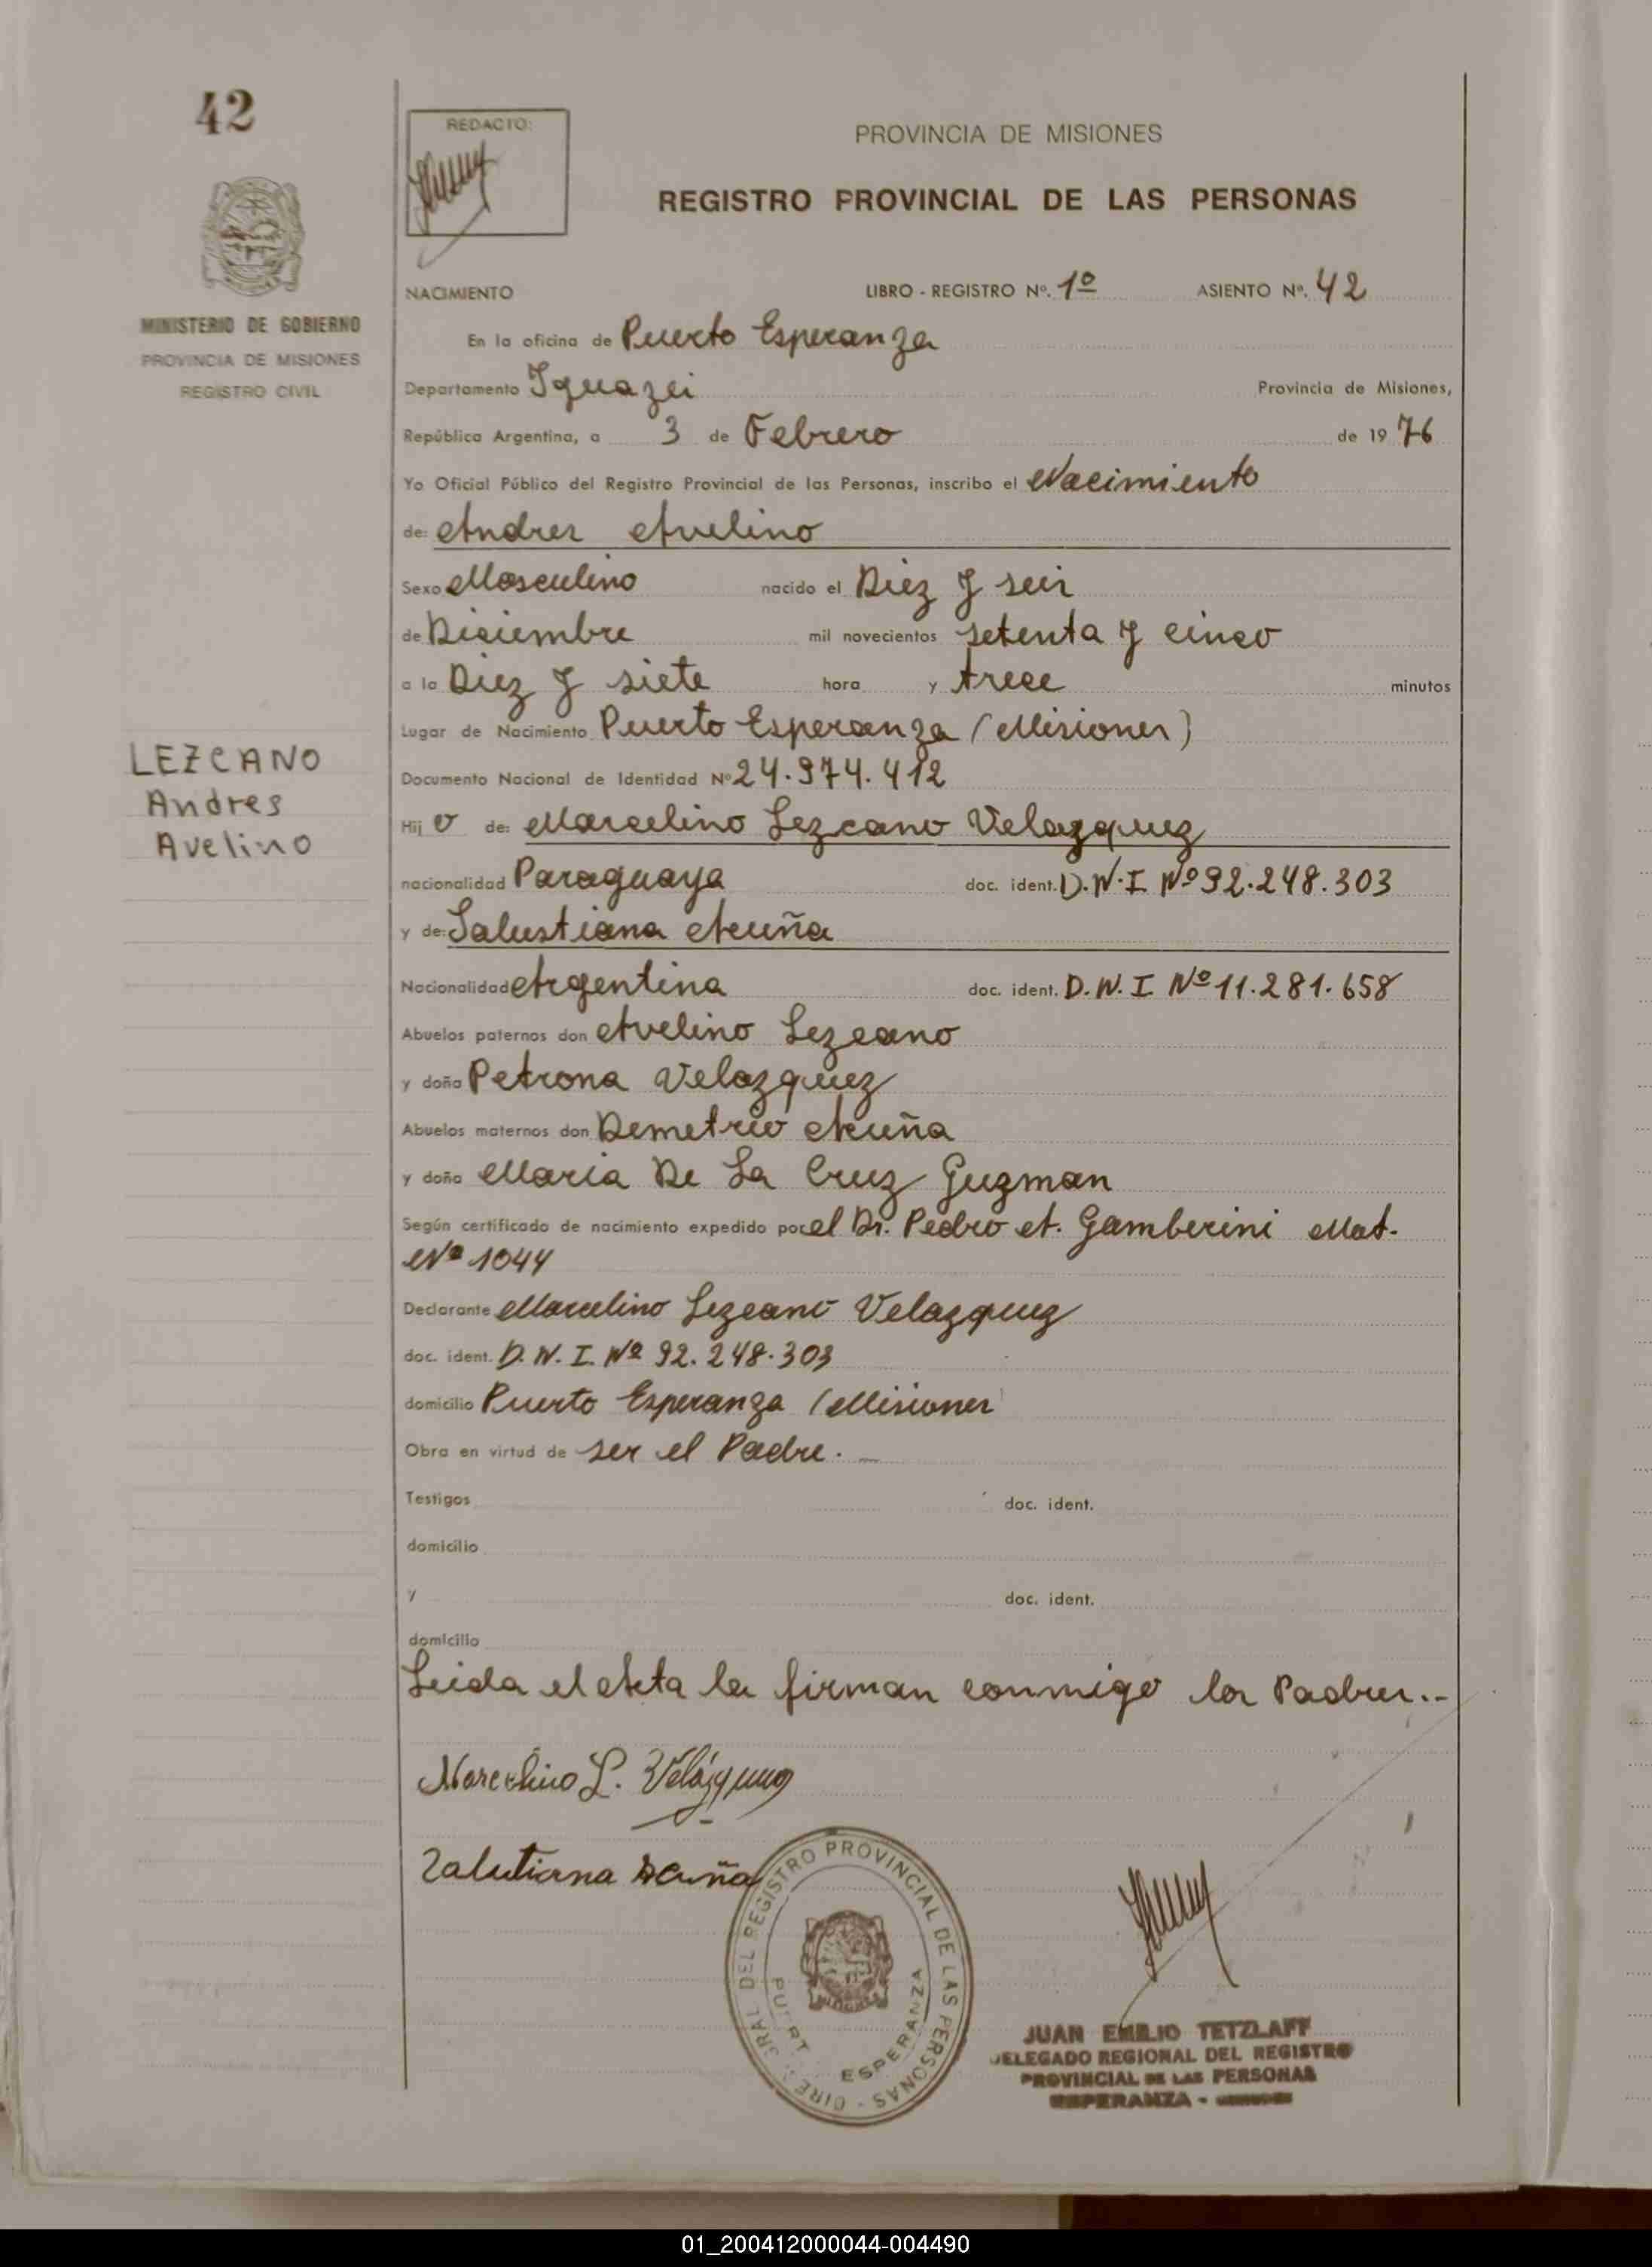 42
REDACTO:
PROVINCIA DE MISIONES
REGISTRO PROVINCIAL DE LAS PERSONAS
MINISTERIO DE GOBIERNO
PROVINCIA DE MISIONES
REGISTRO CIVIL
NACIMIENTO LIBRO - REGISTRO Nº. 1º ASIENTO Nº. 42
En la oficina de Puerto Esperanza
Departamento Iguazú Provincia de Misiones,
República Argentina, a 3 de Febrero de 1976
Yo Oficial Público del Registro Provincial de las Personas, inscribo el Nacimiento
de: Andres Avelino
Sexo Masculino nacido el Diez y seis
de Diciembre mil novecientos setenta y cinco
a la Diez y siete hora y trece minutos
Lugar de Nacimiento Puerto Esperanza (Misiones)
LEZCANO
Andres
Avelino
Documento Nacional de Identidad Nº 24.974.412
Hijo de: Marcelino Lezcano Velazquez
nacionalidad Paraguaya doc. ident. D.N.I Nº 92.248.303
y de: Salustiana Acuña
Nacionalidad Argentina doc. ident. D.N.I Nº 11.281.658
Abuelos paternos don Avelino Lezcano
y doña Petrona Velazquez
Abuelos maternos don Demetrio Acuña
y doña Maria De La Cruz Guzman
Según certificado de nacimiento expedido por el Dr. Pedro A. Gamberini Mat.
Nº 1044
Declarante Marcelino Lezcano Velazquez
doc. ident. D.N.I. Nº 92.248.303
domicilio Puerto Esperanza (Misiones
Obra en virtud de ser el Padre.
Testigos doc. ident.
domicilio
y doc. ident.
domicilio
Leida el Acta la firman conmigo los Padres..-
Marcelino L. Velázquez
Zalutiana Acuña
DEL REGISTRO PROVINCIAL DE LAS PERSONAS
ESPERANZA
JUAN EMILIO TETZLAFF
DELEGADO REGIONAL DEL REGISTRO
PROVINCIAL DE LAS PERSONAS
ESPERANZA -
01_200412000044-004490